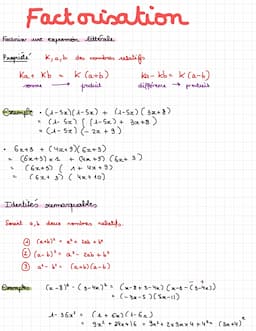 Factorisation
Factoriser une expression littérale
Propriété K, a, b des nombres relatifs
Ka + Kb = K (a+b) Ka - Kb = K (a-b)
somme → produit différence → produit
Exemple • (1-5x)(1-5x) + (1-5x)(3x+8)
= (1-5x) [(1-5x) + 3x+8)
= (1-5x) (-2x + 9)
• 6x+3 + (4x+9)(6x+3)
= (6x+3) × 1 + (4x+9)(6x+3)
= (6x+3) ( 1 + 4x+9)
= (6x+3) (4x+10)
Identités remarquables
Soient a, b deux nombres relatifs.
① (a+b)² = a² + 2ab + b²
② (a-b)² = a² - 2ab + b²
③ a² - b² = (a+b)(a-b)
Exemple (x-8)² - (3-4x)² = (x-8+3-4x)(x-8-(3-4x))
= (-3x-5)(5x-11)
1-36x² = (1+6x)(1-6x)
9x² + 24x + 16 = 9x² + 2×3x×4 + 4² = (3x+4)²